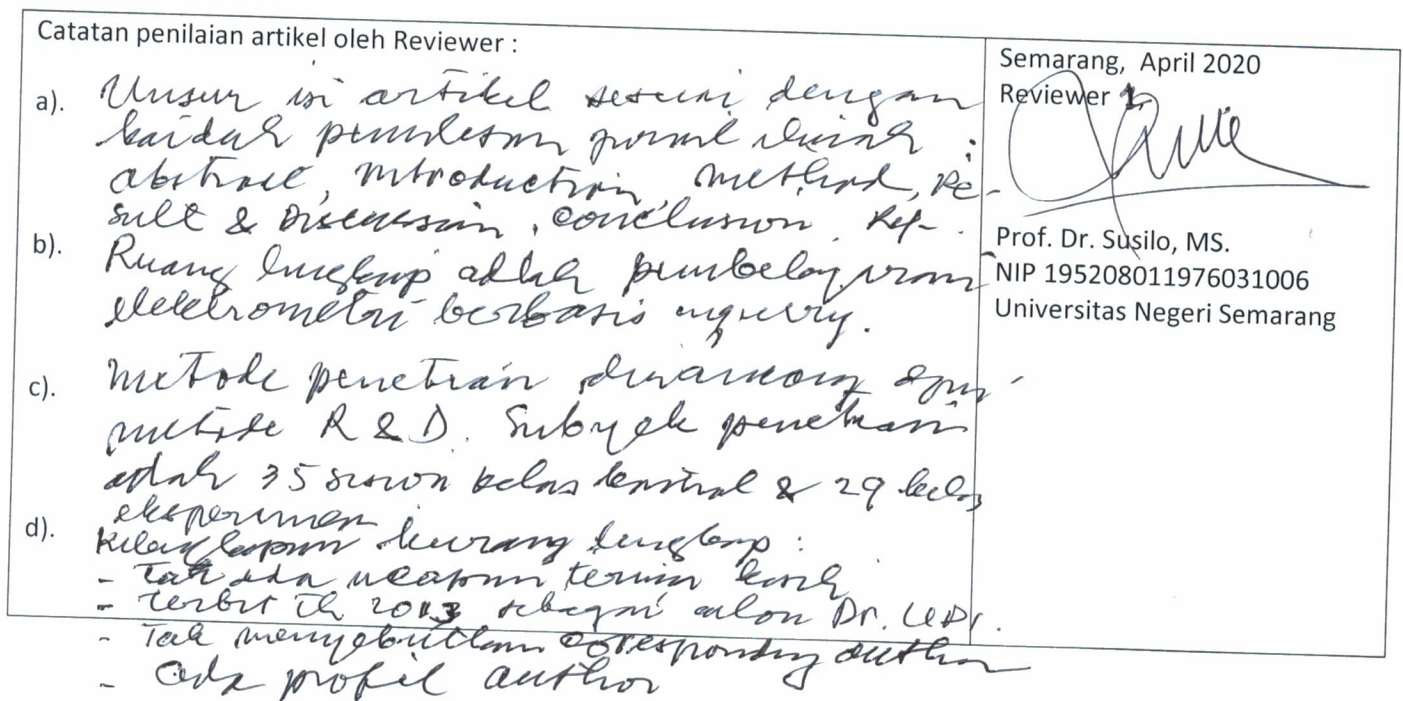 Catatan penilaian artikel oleh Reviewer :
a). Unsur isi artikel sesuai dengan
kaidah penulisan jurnal ilmiah :
abstract, introduction, method, Re-
sult & Discussion, conclusion. Ref-.
b). Ruang lingkup adlah pembelajaran
elektrometri berbasis inquiry.
c). Metode penetian dgn
metode R & D. Subyek penetian
adlah 35 siswa kelas kontrol & 29 kelas
eksperimen
d). Kelengkapan kurang lengkap :
- Tak ada ucapan terima kasih
- terbit th 2013 sebagai Dr.
- Tak menyebutkan corresponding author
- Ada profil author
Semarang, April 2020
Reviewer 1,
Prof. Dr. Susilo, MS.
NIP 195208011976031006
Universitas Negeri Semarang